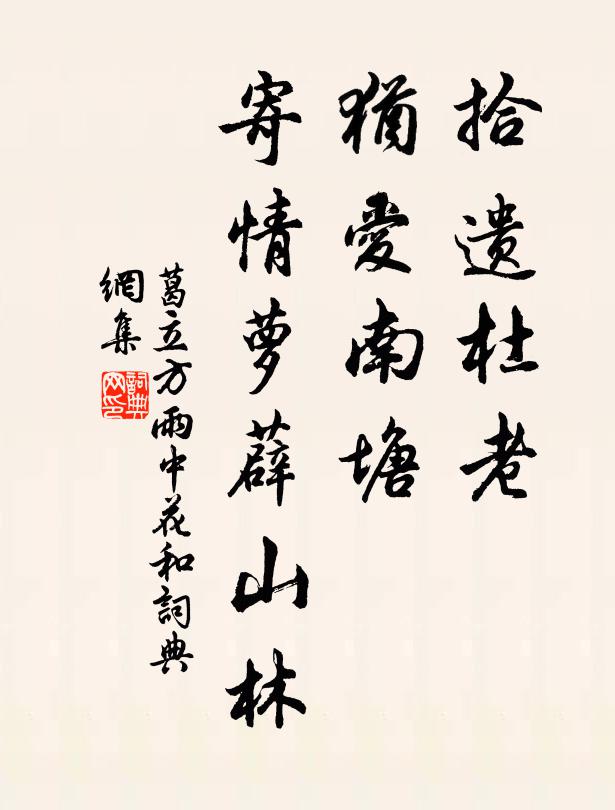 拾遺杜老
猶愛南塘
寄情夢薜山林
葛立方雨中花和詞典
網集
詞典网印